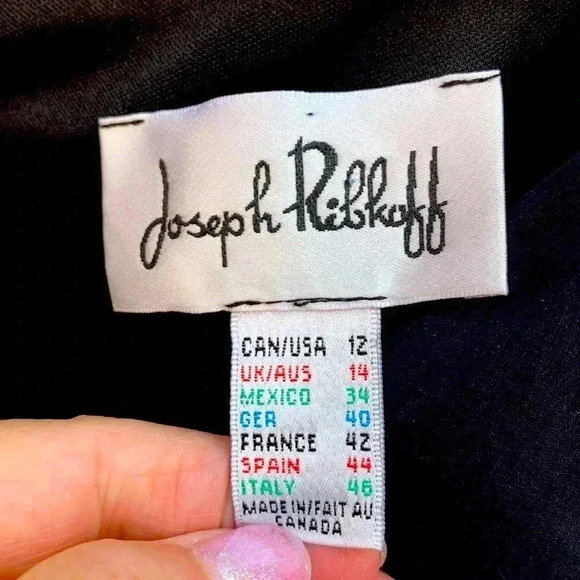 Joseph Ribkoff
CAN/USA 12
UK/AUS 14
MEXICO 34
GER 40
FRANCE 42
SPAIN 44
ITALY 46
MADE IN/FAIT AU
CANADA